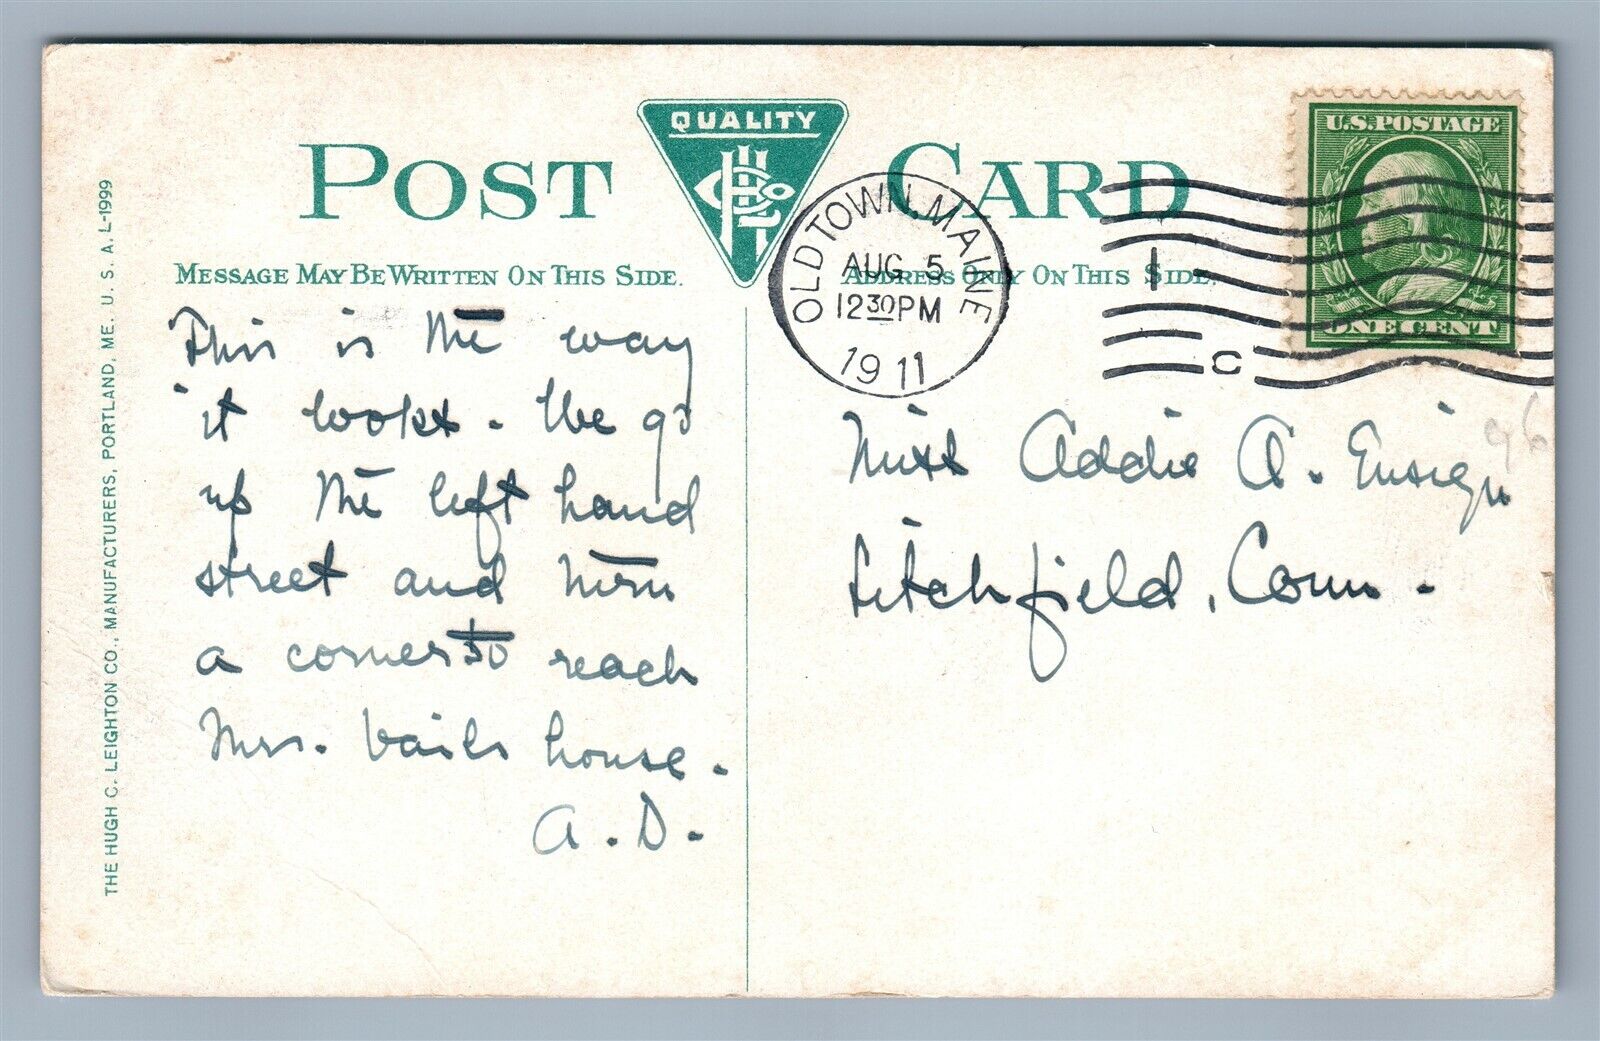 QUALITY
H C L Co
POST CARD
MESSAGE MAY BE WRITTEN ON THIS SIDE.
ADDRESS ONLY ON THIS SIDE.
OLDTOWN, MAINE
AUG 5
12 30 PM
1911
1
C
U.S. POSTAGE
ONE CENT
This is the way
it looks. We go
up the left hand
street and turn
a corner to reach
Mrs. Vails house.
A. D.
Miss Addie A. Ensign
Litchfield, Conn.
THE HUGH C. LEIGHTON CO., MANUFACTURERS, PORTLAND, ME. U. S. A. L-1999